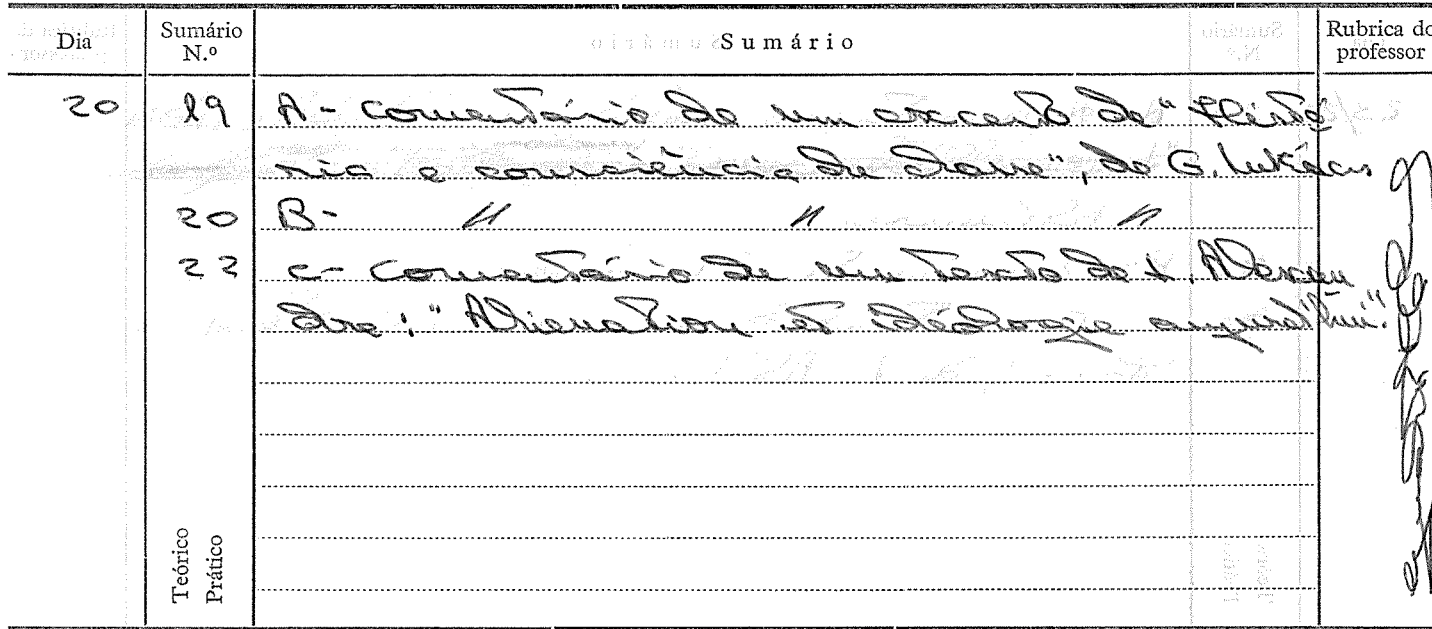 Dia Sumário N.º Sumário Rubrica do professor
20 19 A - comentário de um excerto de "Histó
ria e consciência de classe", de G. Lukács
20 B - " " "
22 C - Comentário de um texto de V. Alexan
dre: "Aliénation et idéologie aujourd'hui".
Teórico
Prático